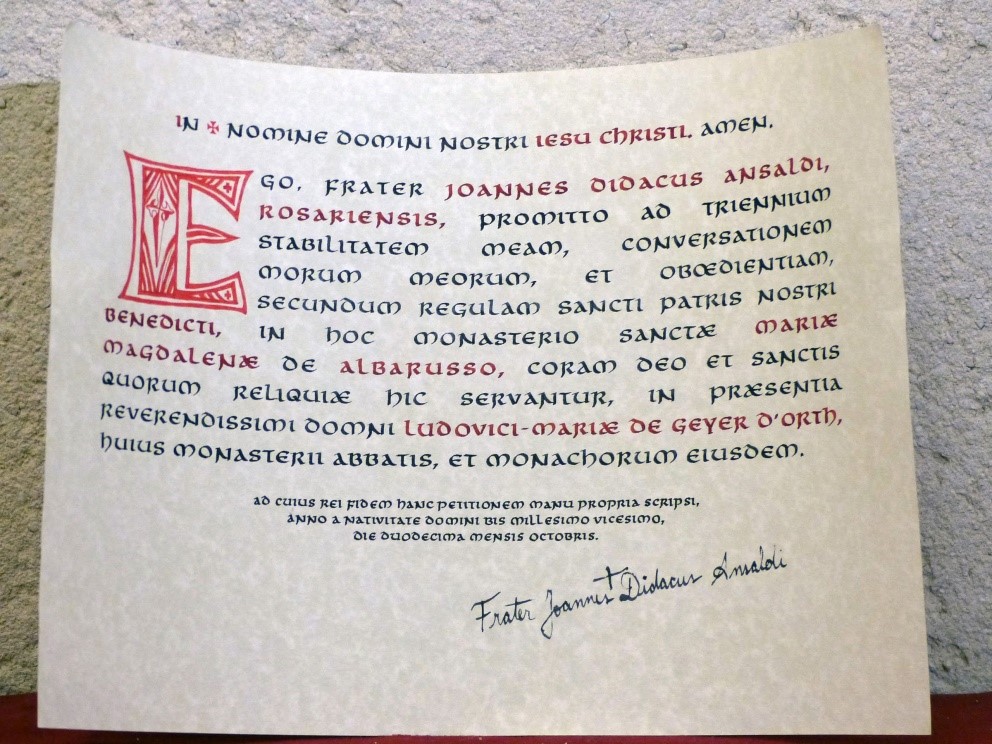 IN ✠ NOMINE DOMINI NOSTRI IESU CHRISTI. AMEN.
EGO, FRATER JOANNES DIDACUS ANSALDI,
ROSARIENSIS, PROMITTO AD TRIENNIUM
STABILITATEM MEAM, CONVERSATIONEM
MORUM MEORUM, ET OBŒDIENTIAM,
SECUNDUM REGULAM SANCTI PATRIS NOSTRI
BENEDICTI, IN HOC MONASTERIO SANCTÆ MARIÆ
MAGDALENÆ DE ALBARUSSO, CORAM DEO ET SANCTIS
QUORUM RELIQUIÆ HIC SERVANTUR, IN PRÆSENTIA
REVERENDISSIMI DOMNI LUDOVICI-MARIÆ DE GEYER D'ORTH,
HUIUS MONASTERII ABBATIS, ET MONACHORUM EIUSDEM.
AD CUIUS REI FIDEM HANC PETITIONEM MANU PROPRIA SCRIPSI,
ANNO A NATIVITATE DOMINI BIS MILLESIMO VICESIMO,
DIE DUODECIMA MENSIS OCTOBRIS.
Frater Joannes † Didacus Ansaldi